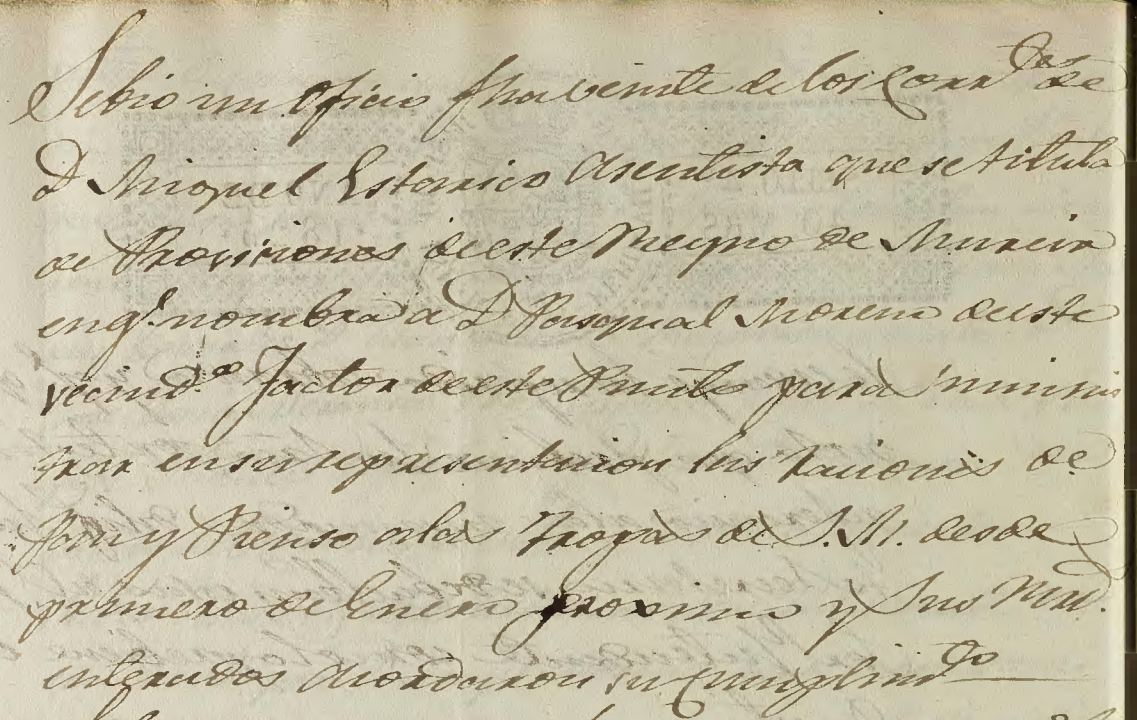 Se bio un Oficio fha veinte de los Corrtes de
D Miguel Estarico Asentista que se titula
de Provisiones de este Reyno de Murcia
en qe nombra a D Pasqual Moreno de este
vecindo Factor de este Punto para suminis
trar en su representacion las raciones de
Pan y Pienso a las Tropas de S.M. desde
primero de Enero proximo y Sus Mrd.
enterados Acordaron su Cumplimto